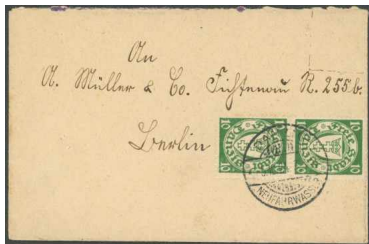 An
A. Müller & Co. Fichtenau R. 255b.
Berlin
10 10
10 10
NEUFAHRWASSER